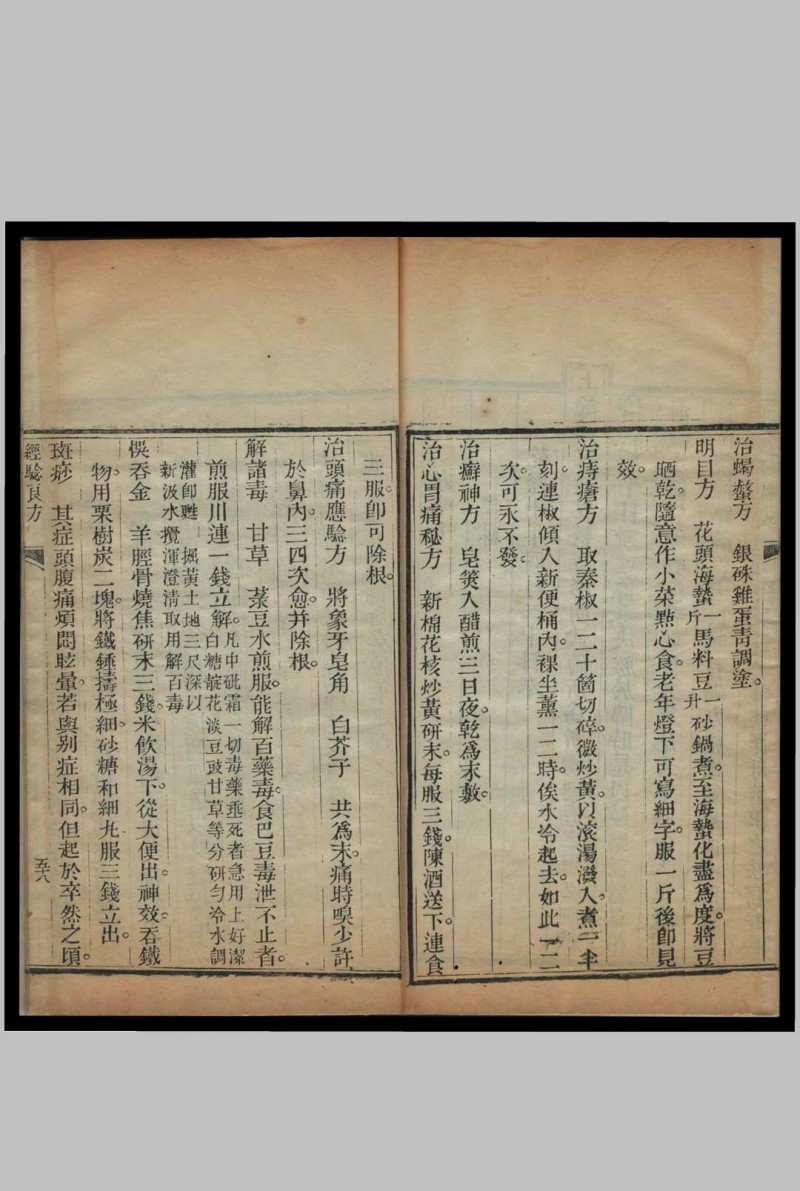 治蝎螫方　銀硃雞蛋青調塗。
明目方　花頭海蟄一斤馬料豆一升砂鍋煮。至海蟄化盡爲度。將豆
晒乾。隨意作小菜點心食。老年燈下可寫細字。服一斤後即見
效。
治痔瘡方　取秦椒一二十箇切碎。微炒黃。以滾湯潑入。煮
刻。連椒傾入新便桶內。裸坐薰一二時。俟水冷起去。如此一二
次。可永不發。
治癬神方　皂莢入醋煎三日夜。乾爲末敷。
治心胃痛秘方　新棉花核炒黃研末。每服三錢。陳酒送下。連食
三服。即可除根。
治頭痛應驗方　將象牙皂角　白芥子　共爲末。痛時嗅少許
於鼻內。三四次愈。并除根。
解諸毒　甘草　菉豆水煎服。能解百藥毒。食巴豆毒泄不止者。
煎服川連一錢立解。凡中砒霜一切毒藥垂死者急用上好潔
白糖靛花淡豆豉甘草等分研勻冷水調
灌即甦　掘黃土地三尺深以
新汲水攪渾澄清取用解百毒
悞吞金　羊脛骨燒焦研末三錢。米飲湯下。從大便出。神效。吞鐵
物。用栗樹炭二塊。將鐵錘擣極細。砂糖和細丸。服三錢立出。
斑痧　其症頭腹痛煩悶眩暈。若與別症相同。但起於卒然之頃。
經驗良方
五十八